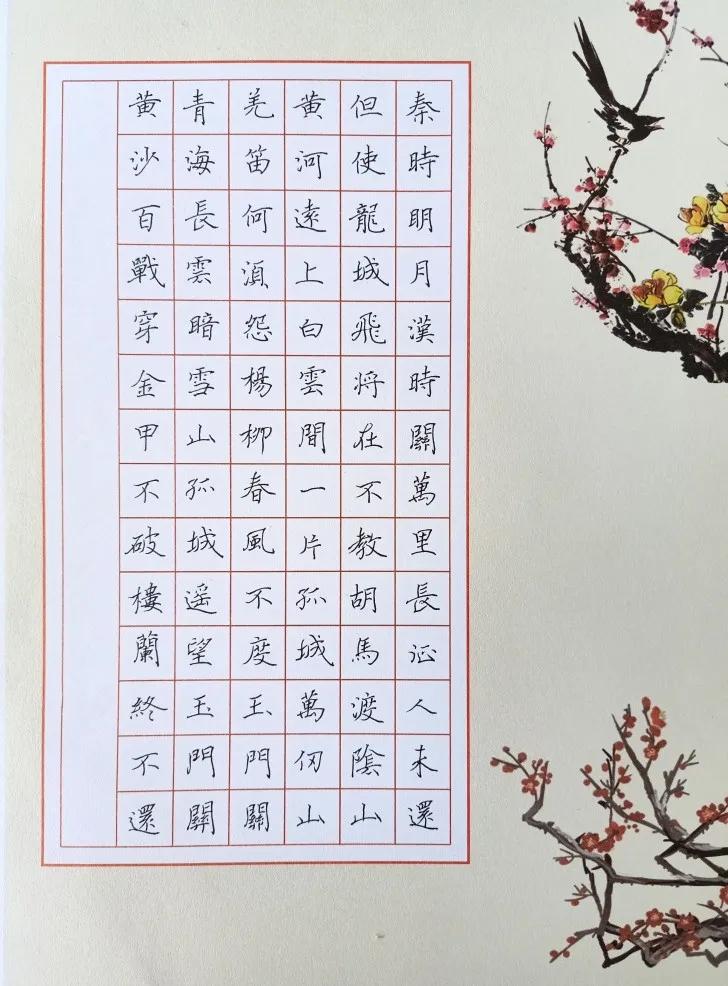 秦時明月漢時關萬里長征人未還
但使龍城飛將在不教胡馬渡陰山
黃河遠上白雲間一片孤城萬仞山
羌笛何須怨楊柳春風不度玉門關
青海長雲暗雪山孤城遥望玉門關
黃沙百戰穿金甲不破樓蘭終不還